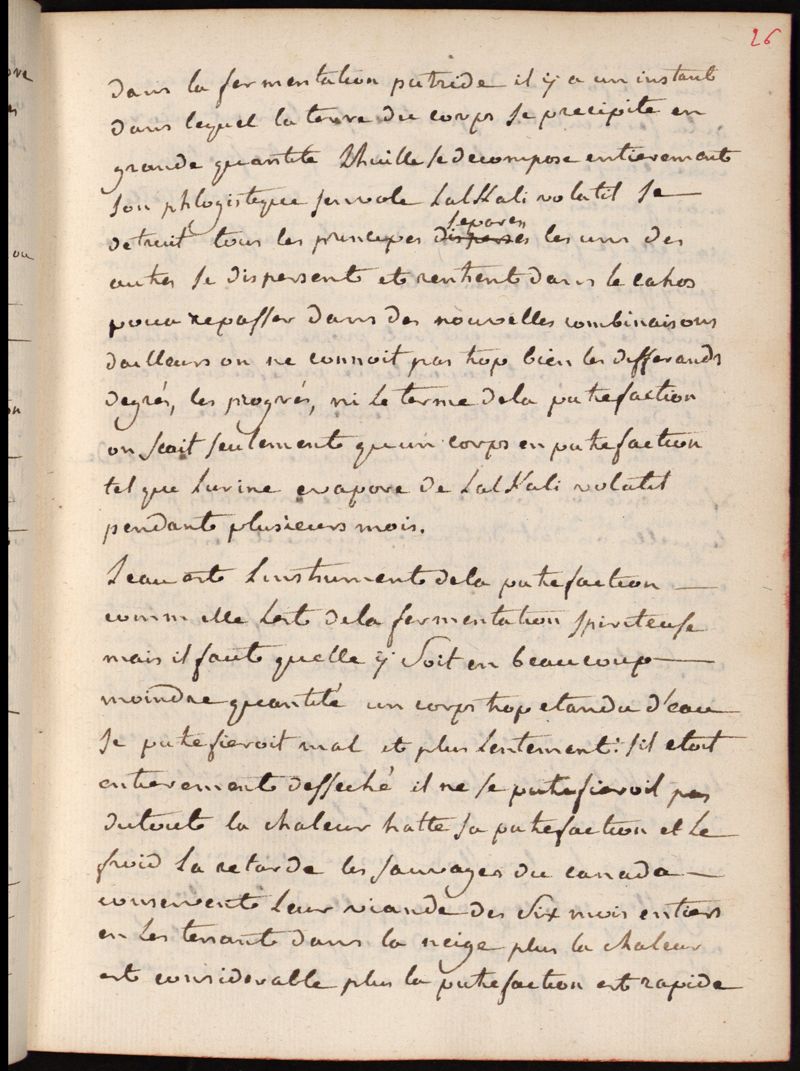 26
dans la fermentation putride il ÿ a un instant
dans lequel la terre du corps se precipite en
grande quantité Lhuille se decompose entierement
son phlogistique senvole LalKali volatil se
detruit tous les principes disperses separes les uns des
autres se dispersent et rentrent dans le cahos
pour repasser dans des nouvelles combinaisons
dailleurs on ne connoit pas trop bien les differands
degrés, les progrés, ni Le terme dela putrefaction
on scait seulement quun corps en putrefaction
tel que Lurine evapore de LalKali volatil
pendant plusieurs mois.
Leau est Linstrument dela putrefaction
comm elle Lest dela fermentation spiriteuse
mais il faut quelle ÿ Soit en beaucoup
moindre quantité un corps trop etandu d'eau
se putrefieroit mal et plus Lentement : sil etoit
entierement desseché il ne se putrefieroit pas
dutout la chaleur hatte sa putrefaction et Le
froid La retarde les sauvages du canada
conservent Leur viande des Six mois entiers
en Les tenant dans la neige plus la chaleur
est considerable plus la putrefaction est rapide